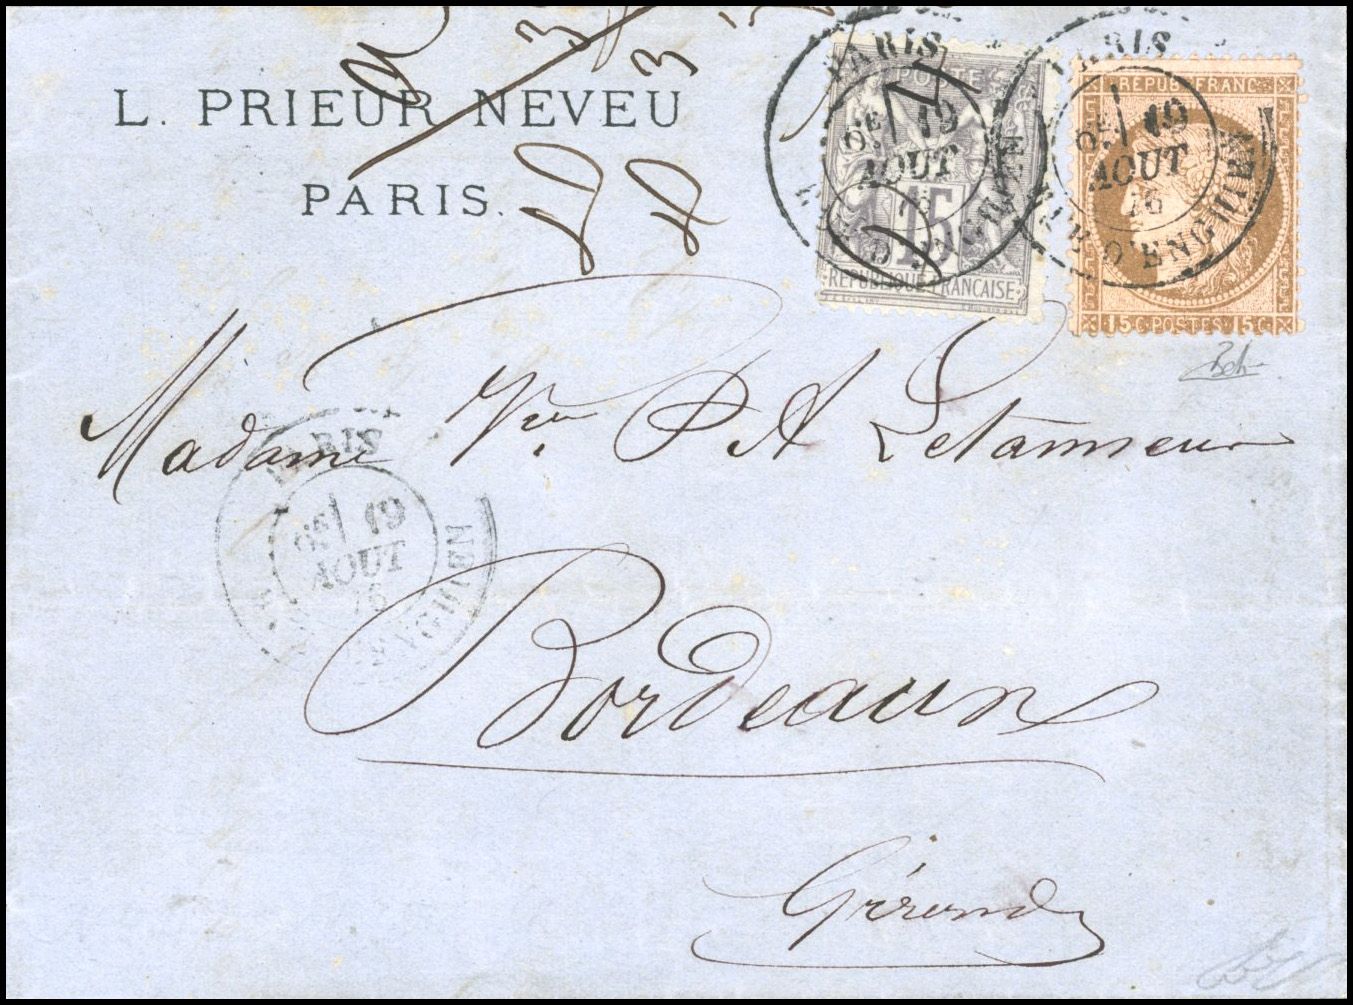 L. PRIEUR NEVEU
PARIS.
3
3
PARIS
6E 19
AOUT
76
R. D'ENGHIEN
POSTE
15
REPUBLIQUE FRANCAISE
PARIS
6E 19
AOUT
76
R. D'ENGHIEN
REPUB FRANC
15 C. POSTES 15 C
Madame Vve P A Letanneur
PARIS
6E 19
AOUT
76
ENGHIEN
Bordeaux
Gironde